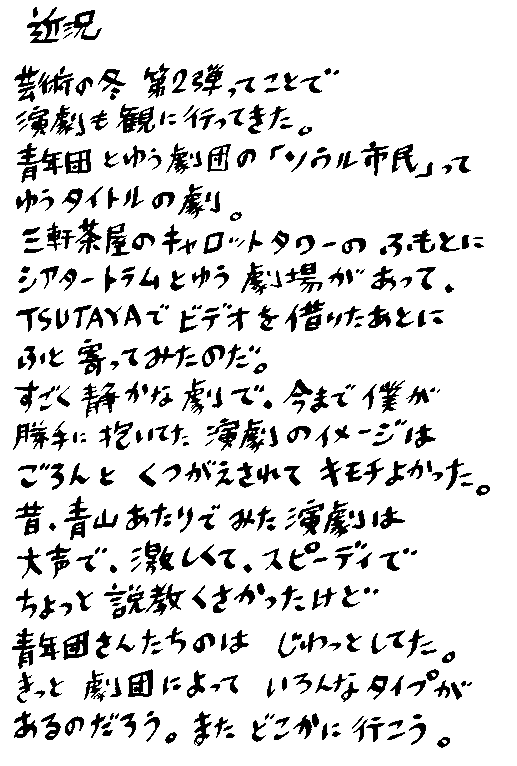 近況
芸術の冬 第2弾ってことで
演劇も観に行ってきた。
青年団とゆう劇団の「ソウル市民」って
ゆうタイトルの劇。
三軒茶屋のキャロットタワーのふもとに
シアタートラムとゆう劇場があって、
TSUTAYAでビデオを借りたあとに
ふと寄ってみたのだ。
すごく静かな劇で、今まで僕が
勝手に抱いてた演劇のイメージは
ごろんとくつがえされてキモチよかった。
昔、青山あたりでみた演劇は
大声で、激しくて、スピーディで
ちょっと説教くさかったけど
青年団さんたちのは じわっとしてた。
きっと劇団によって いろんなタイプが
あるのだろう。またどこかに行こう。